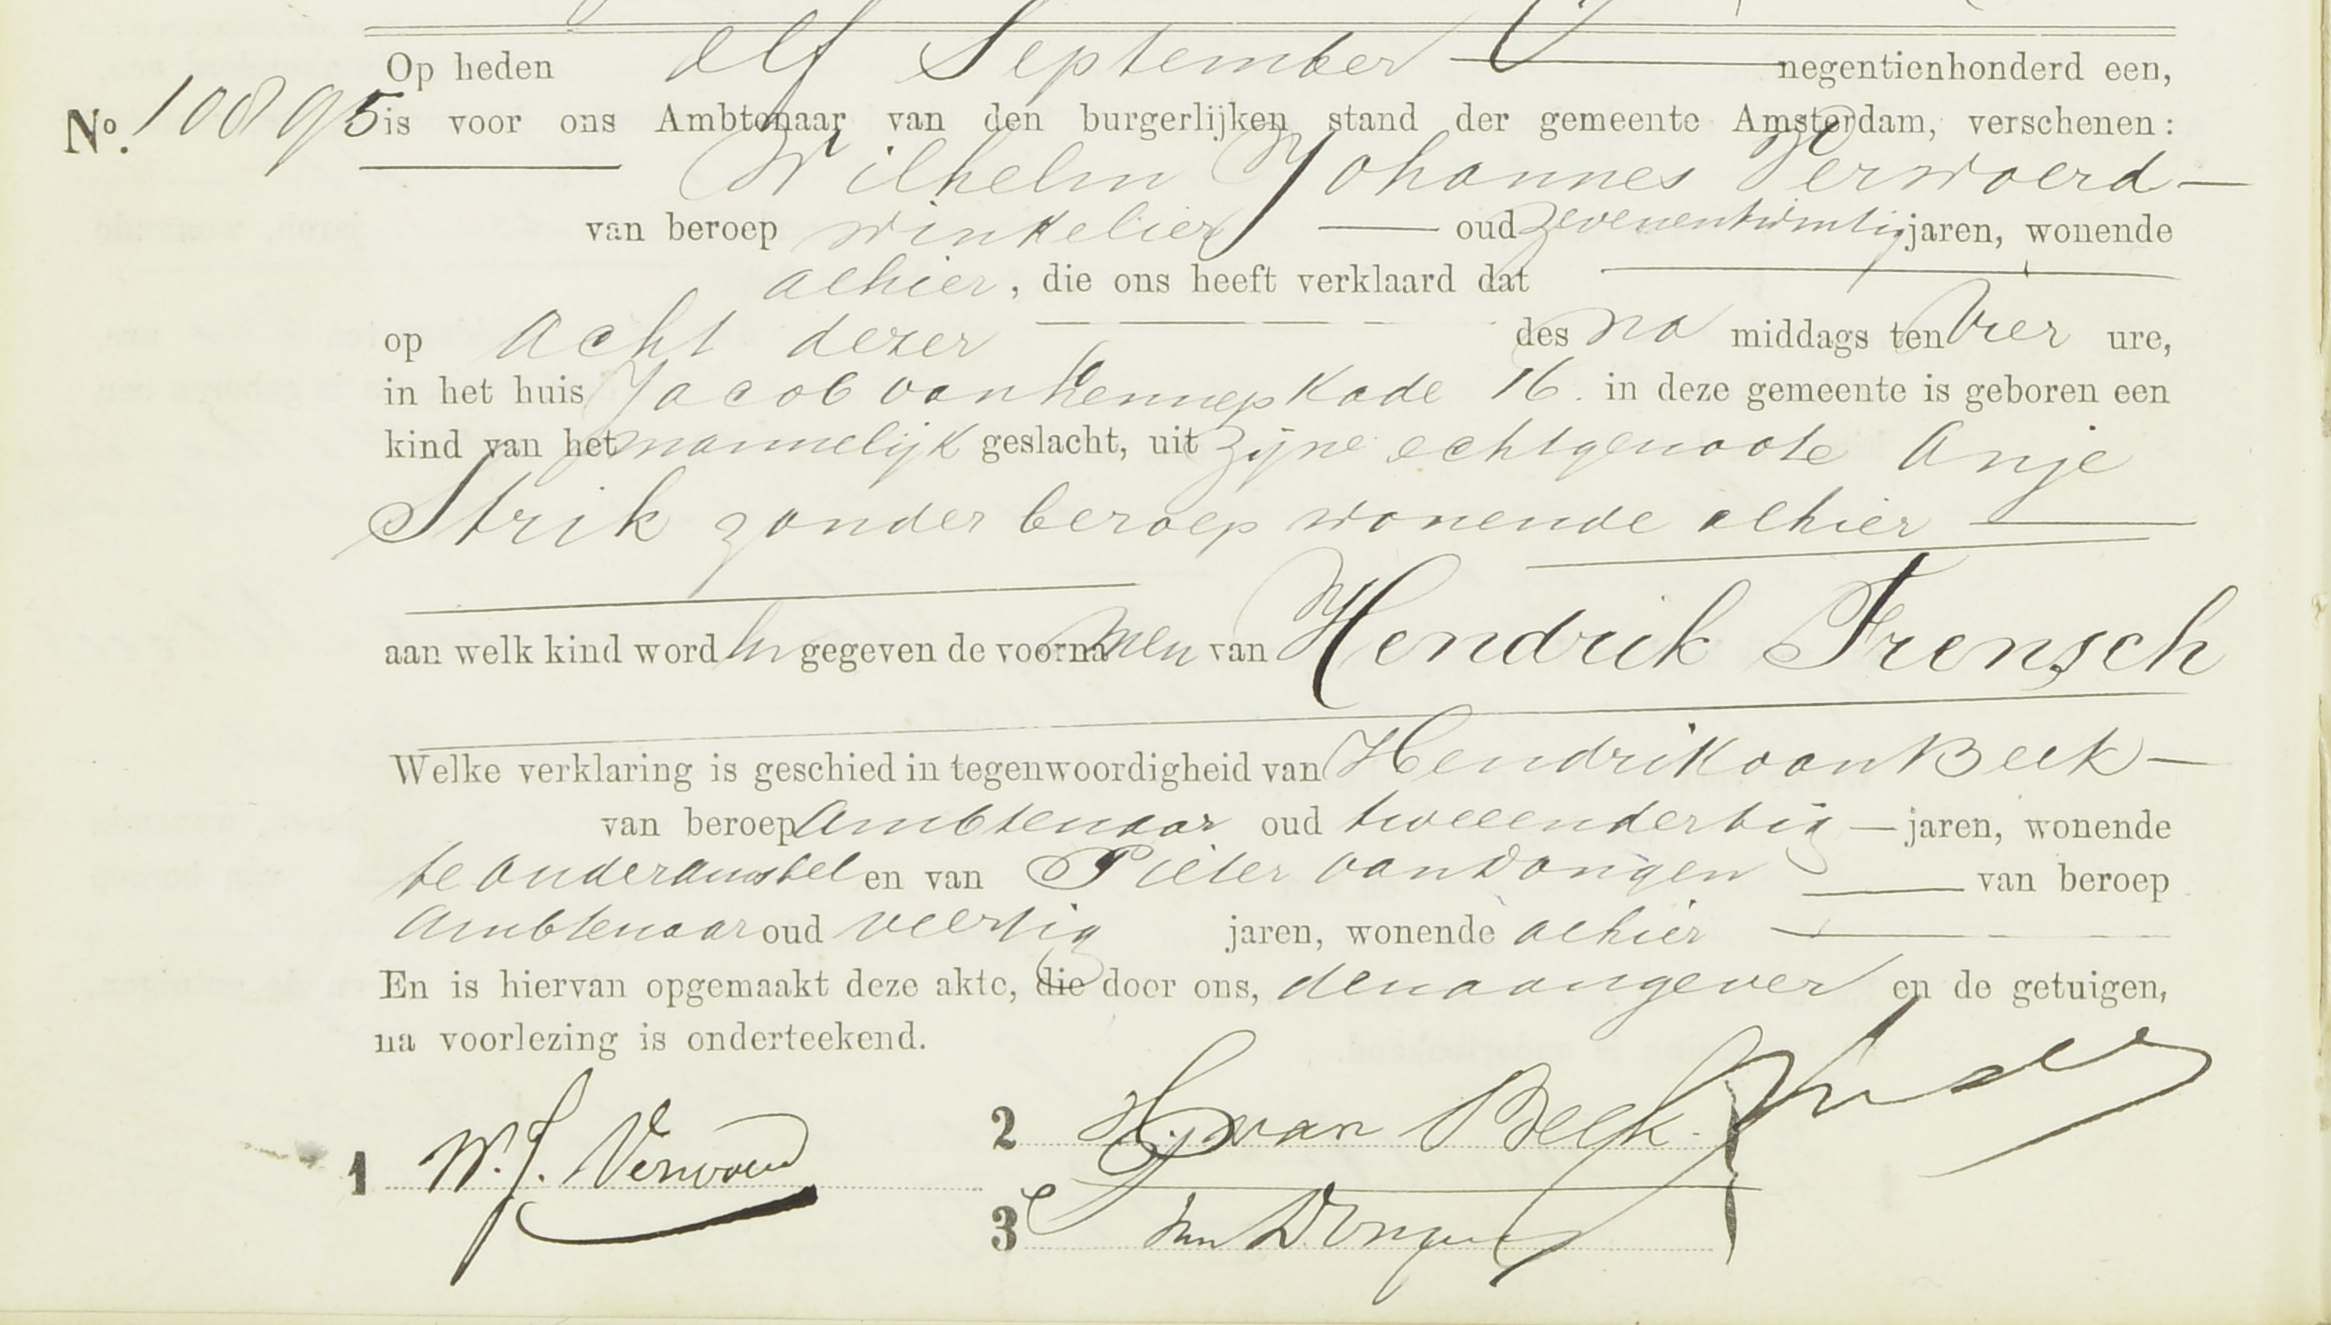 Op heden elf September negentienhonderd een,
No. 10895 is voor ons Ambtenaar van den burgerlijken stand der gemeente Amsterdam, verschenen:
Wilhelm Johannes Verwoerd
van beroep winkelier oud zevenentwintig jaren, wonende
alhier, die ons heeft verklaard dat
op acht dezer des na middags ten vier ure,
in het huis Jacob van Lennepkade 16. in deze gemeente is geboren een
kind van het mannelijk geslacht, uit zijne echtgenoote Anje
Strik zonder beroep wonende alhier
aan welk kind word en gegeven de voorna men van Hendrik Frensch
Welke verklaring is geschied in tegenwoordigheid van Hendrik van Beek
van beroep Ambtenaar oud tweeendertig jaren, wonende
te Ouderamstel en van Pieter van Dongen van beroep
Ambtenaar oud veertig jaren, wonende alhier
En is hiervan opgemaakt deze akte, die door ons, den aangever en de getuigen,
na voorlezing is onderteekend.
1 W.J. Verwoerd
2 H. van Beek.
3 P van Dongen